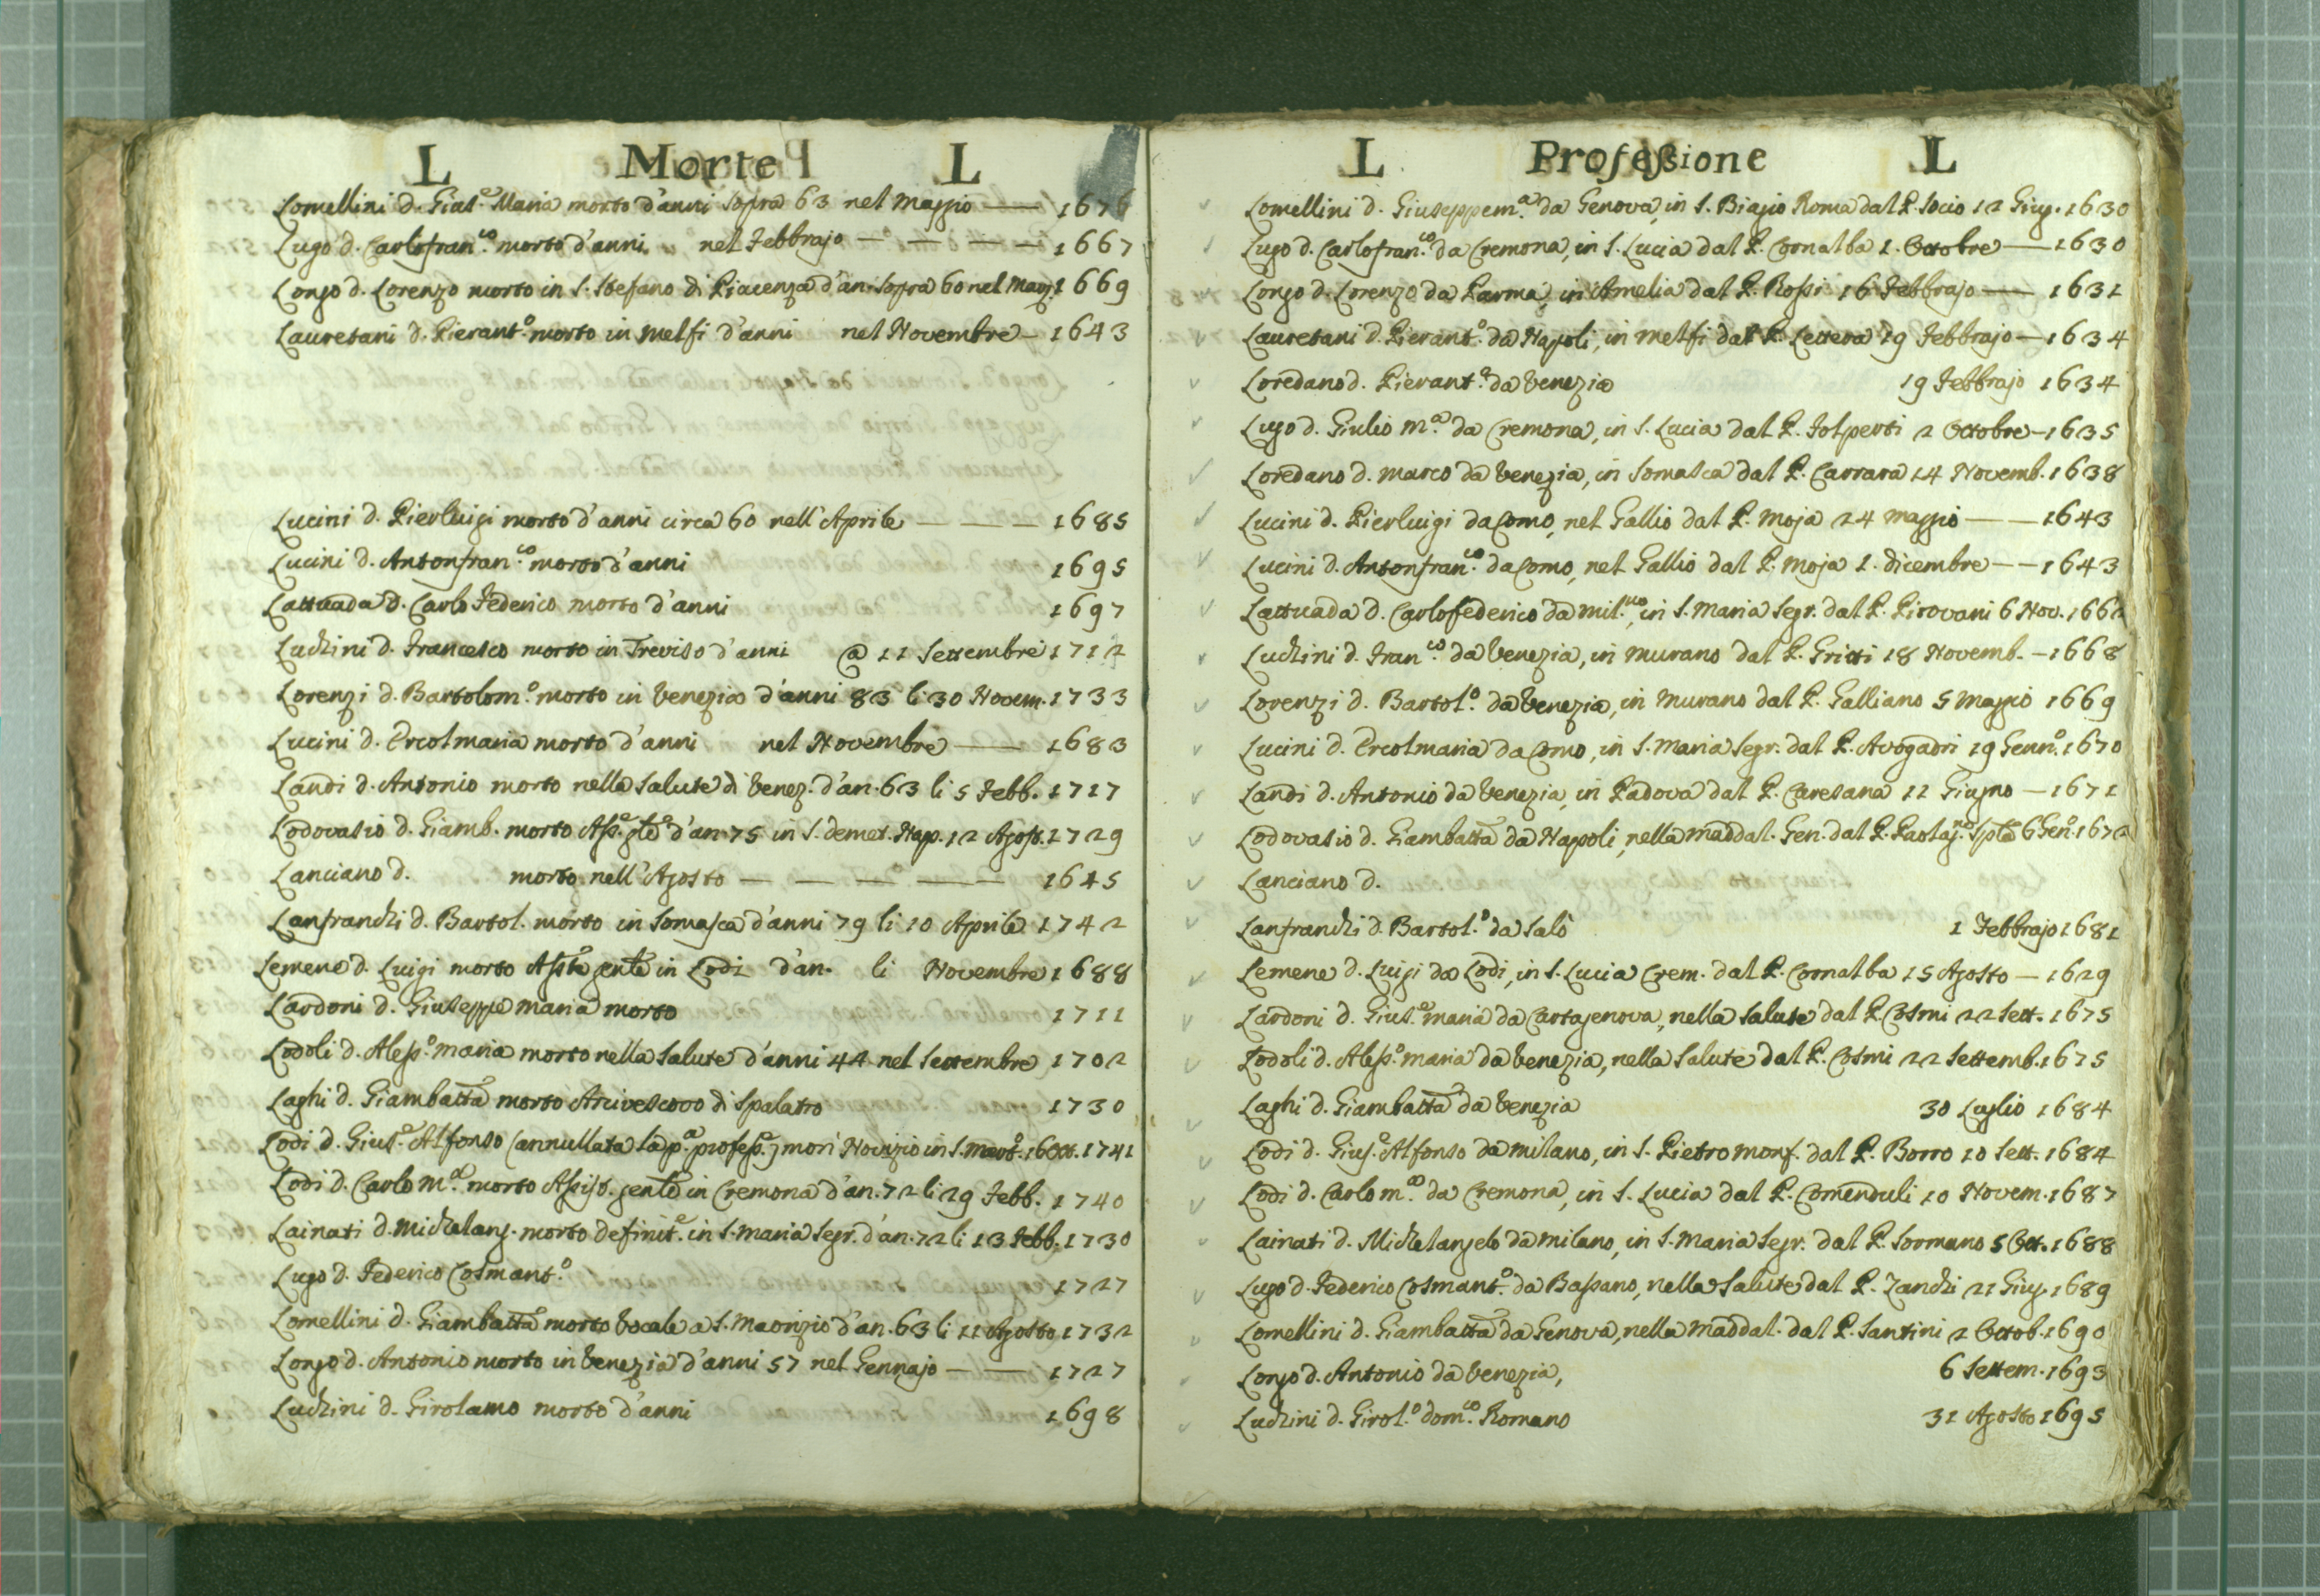 L Morte L
Lomellini d. Gius.e Maria morto d'anni sopra 63 nel Maggio — 1676
Lugo d. Carlofran.co morto d'anni nel Febbrajo — — — — 1667
Longo d. Lorenzo morto in S. Stefano di Piacenza d'an. sopra 60 nel Mag. 1669
Lauretani d. Pierant.o morto in Melfi d'anni nel Novembre — 1643
Lucini d. Pierluigi morto d'anni circa 60 nell'Aprile — — — 1685
Lucini d. Antonfran.co morto d'anni 1695
Lattuada d. Carlo Federico morto d'anni 1697
Luchini d. Francesco morto in Treviso d'anni @ 11 Settembre 1712
Lorenzi d. Bartolom.o morto in Venezia d'anni 83 li 30 Novem. 1733
Lucini d. Ercolmaria morto d'anni nel Novembre — 1683
Landi d. Antonio morto nella Salute di Venez. d'an. 63 li 5 Febb. 1717
Lodovasio d. Giamb. morto d'an. 75 in S. Demet. Nap. 12 Agost. 1729
Lanciano d. morto nell'Agosto — — — — 1645
Lanfranchi d. Bartol. morto in Somasca d'anni 79 li 10 Aprile 1742
Lemene d. Luigi morto in Lodi d'an. li Novembre 1688
Lardoni d. Giuseppe Maria morto 1711
Lodoli d. Aless.o Maria morto nella Salute d'anni 44 nel Settembre 1702
Laghi d. Giambatta morto Arcivescovo di Spalatro 1730
Lodi d. Gius.e Alfonso (annullata la p.a profess.e) morì Novizio in S. 16 Ott. 1741
Lodi d. Carlo M.a morto Assist. gente in Cremona d'an. 72 li 29 Febb. 1740
Lainati d. Michelang. morto definit.e in S. Maria Segr. d'an. 72 li 13 Febb. 1730
Lugo d. Federico Cosmant.o 1727
Lomellini d. Giambatta morto Vocale a S. Maorizio d'an. 63 li 11 Agosto 1732
Longo d. Antonio morto in Venezia d'anni 57 nel Gennajo — 1727
Luchini d. Girolamo morto d'anni 1698
L Professione L
Lomellini d. Giuseppem.a da Genova, in S. Biagio Roma dal P. Socio 12 Giug. 1630
Lugo d. Carlofran.co da Cremona, in S. Lucia dal P. Cornalba 1. Ottobre — 1630
Longo d. Lorenzo da Parma, in Amelia dal P. Rossi 16 Febbrajo — 1631
Lauretani d. Pierant.o da Napoli, in Melfi dal P. Lettera 19 Febbrajo — 1634
Loredano d. Pierant.o da Venezia 19 Febbrajo 1634
Lugo d. Giulio M.a da Cremona, in S. Lucia dal P. Folperti 2 Ottobre — 1635
Loredano d. Marco da Venezia, in Somasca dal P. Carrara 14 Novemb. 1638
Lucini d. Pierluigi da Como, nel Gallio dal P. Moja 24 Maggio — — 1643
Lucini d. Antonfran.co da Como, nel Gallio dal P. Moja 1. dicembre — — 1643
Lattuada d. Carlofederico da Mil.no, in S. Maria Segr. dal P. Pirovani 6 Nov. 1662
Luchini d. Fran.co da Venezia, in Murano dal P. Gritti 18 Novemb. — 1668
Lorenzi d. Bartol.o da Venezia, in Murano dal P. Galliano 5 Maggio 1669
Lucini d. Ercolmaria da Como, in S. Maria Segr. dal P. Avogadri 19 Genn.o 1670
Landi d. Antonio da Venezia, in Padova dal P. Caresana 11 Giugno — 1671
Lodovasio d. Giambatta da Napoli, nella Maddal. Gen. dal P. 6 Gen.o 1672
Lanciano d.
Lanfranchi d. Bartol.o da Salò 1 Febbrajo 1681
Lemene d. Luigi da Lodi, in S. Lucia Crem. dal P. Cornalba 15 Agosto — 1629
Lardoni d. Gius.e Maria da Cartagenova, nella Salute dal P. Cosmi 22 Sett. 1675
Lodoli d. Aless.o Maria da Venezia, nella Salute dal P. Cosmi 22 Settemb. 1675
Laghi d. Giambatta da Venezia 30 Luglio 1684
Lodi d. Gius.e Alfonso da Milano, in S. Pietro Monf. dal P. Borro 10 Sett. 1684
Lodi d. Carlo M.a da Cremona, in S. Lucia dal P. Comenduli 10 Novem. 1687
Lainati d. Michelangelo da Milano, in S. Maria Segr. dal P. Sormano 5 Ott. 1688
Lugo d. Federico Cosmant.o da Bassano, nella Salute dal P. Zanchi 21 Giug. 1689
Lomellini d. Giambatta da Genova, nella Maddal. dal P. Santini 2 Ottob. 1690
Longo d. Antonio da Venezia, 6 Settem. 1693
Luchini d. Girol.o Dom.co Romano 31 Agosto 1695